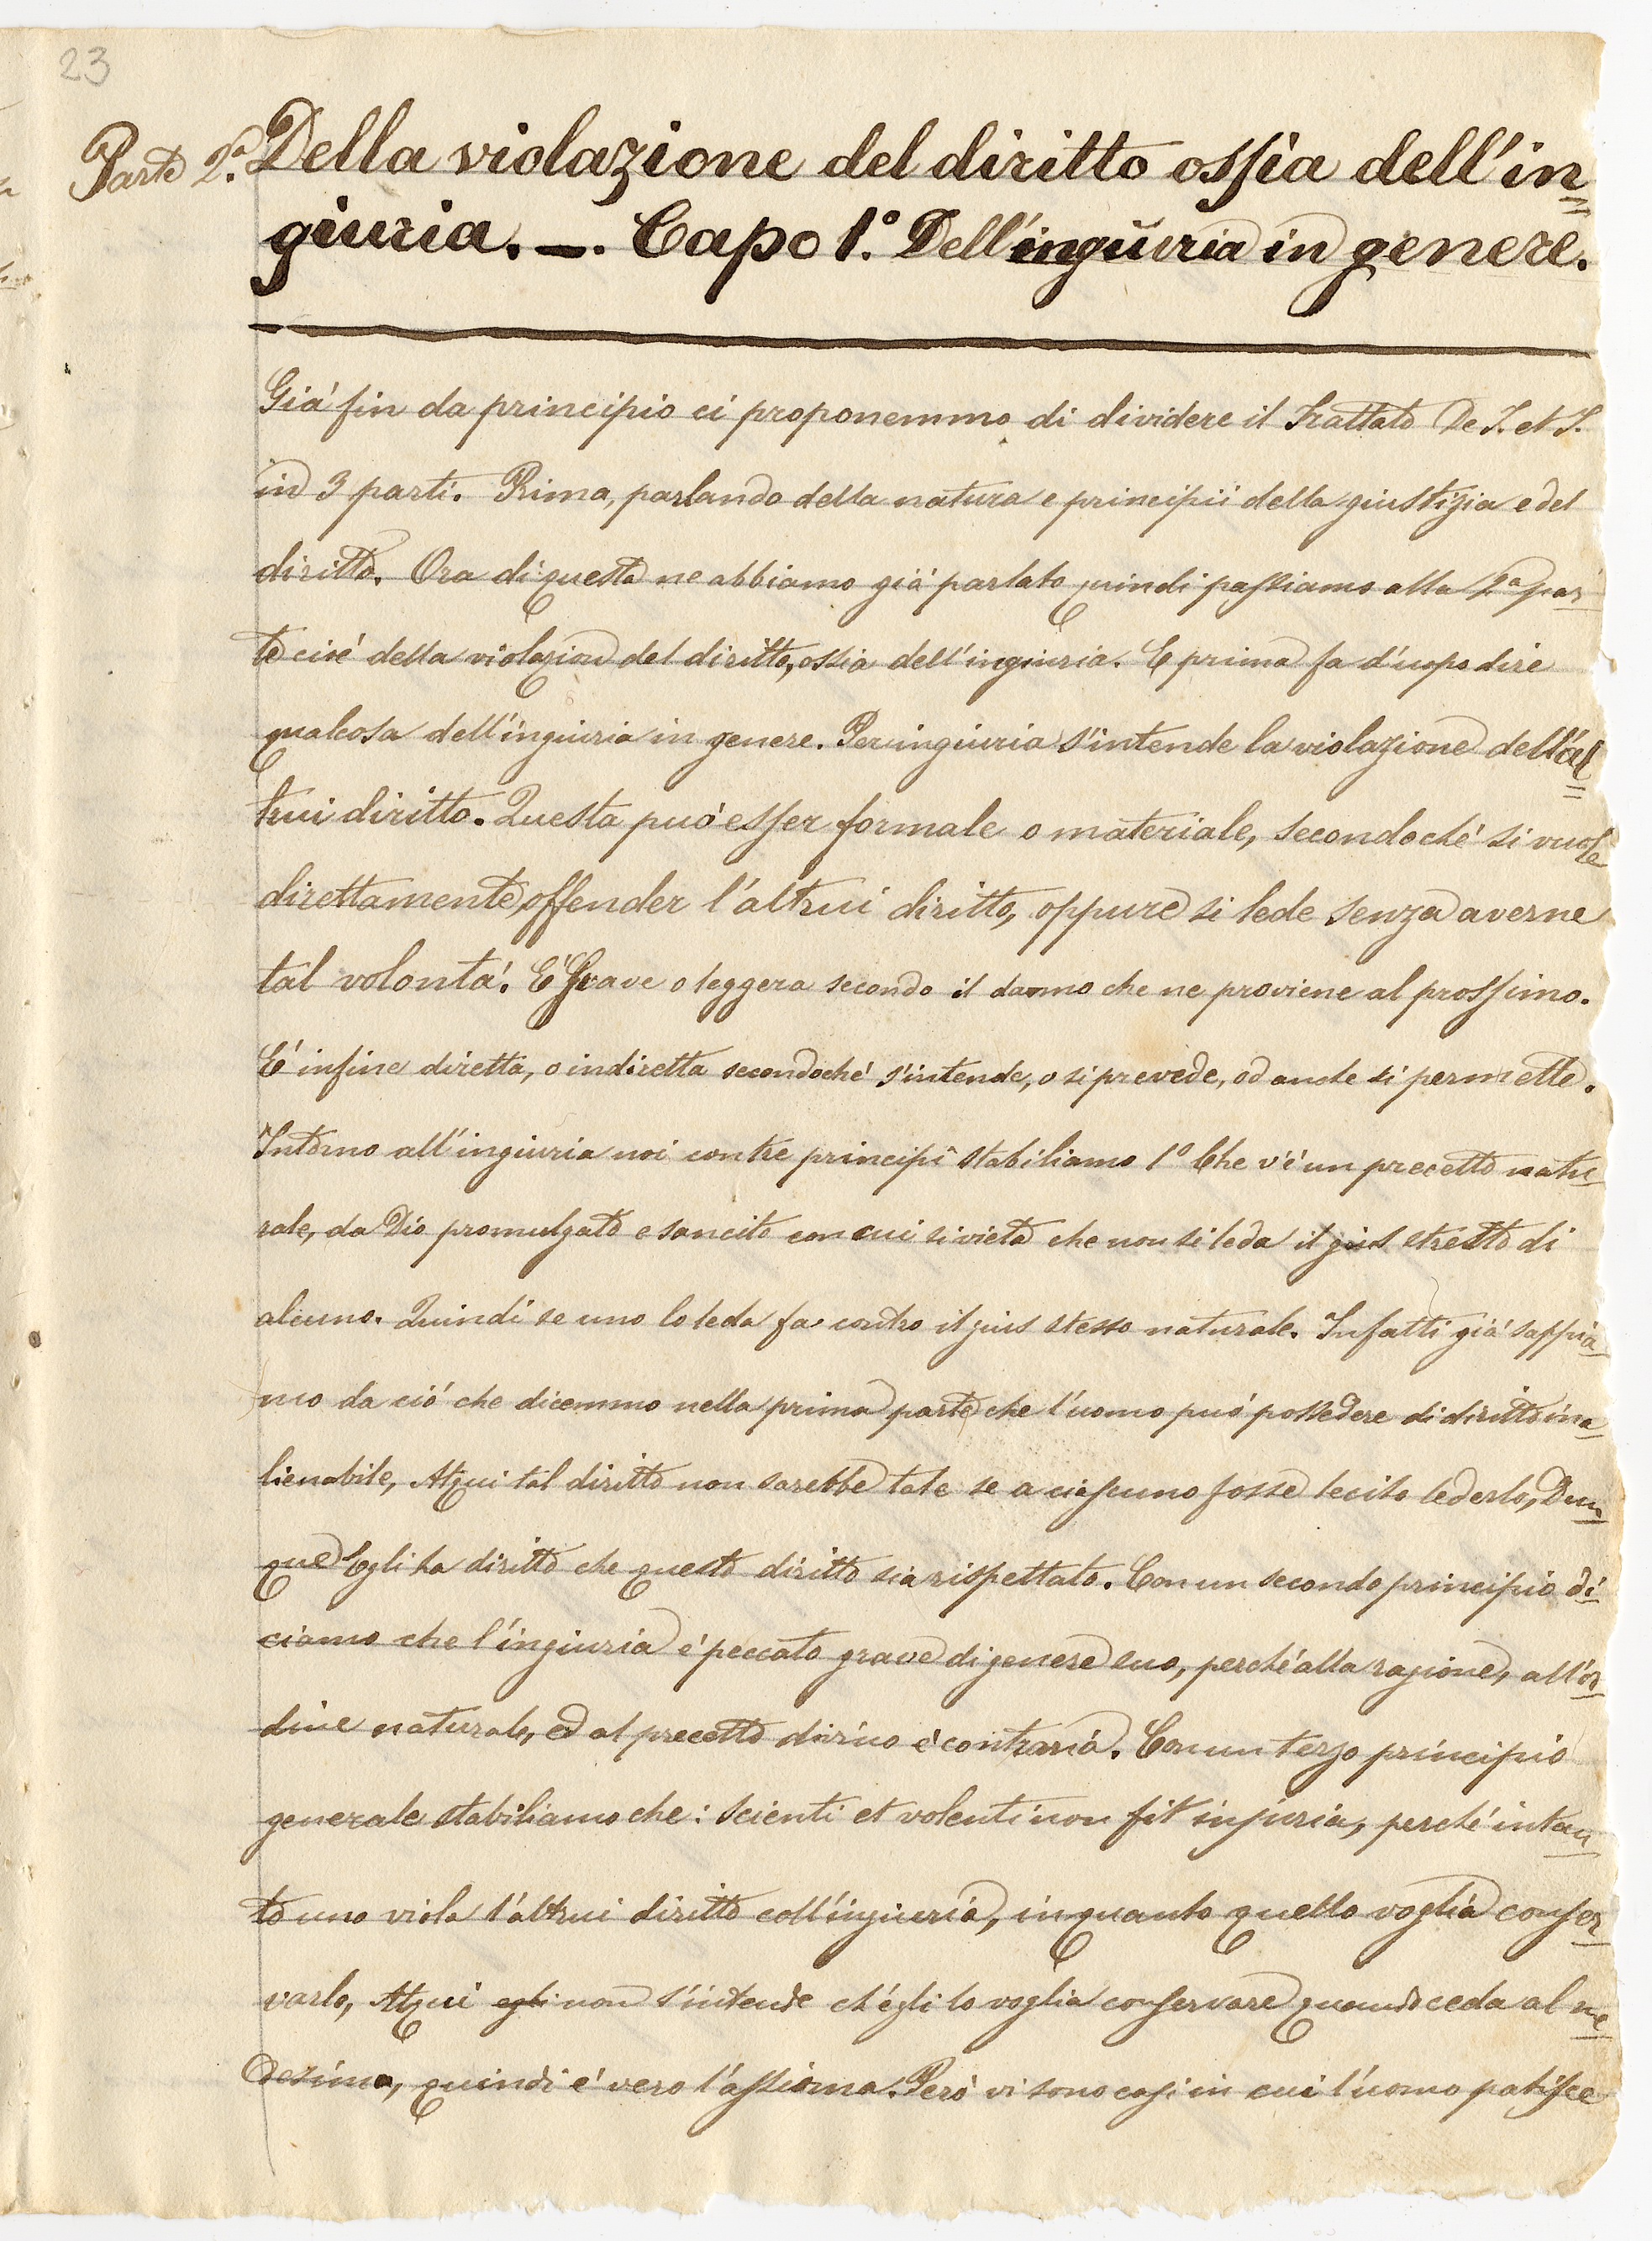 23
Parte 2.a Della violazione del diritto ossia dell'in=
giuria. —. Capo 1.° Dell'ingiuria in genere.
Giá fin da principio ci proponemmo di dividere il Trattato De J. et J.
in 3 parti. Prima, parlando della natura e principii della giustizia e del
diritto. Ora di questa ne abbiamo giá parlato quindi passiamo alla 2a par-
te cioé della violazione del diritto, ossia dell'ingiuria. E prima fa d'uopo dire
qualcosa dell'ingiuria in genere. Per ingiuria s'intende la violazione dell'al=
trui diritto. Questa puó esser formale o materiale, secondoché si vuole
direttamente offender l'altrui diritto, oppure si lede senza averne
tal volontá. É Grave o leggera secondo il danno che ne proviene al prossimo.
É infine diretta, o indiretta secondoché s'intende, o si prevede, od anche si permette.
Intorno all'ingiuria noi con tre principî stabiliamo 1° Che v'é un precetto natu-
rale, da Dio promulgato e sancito con cui si vieta che non si leda il gius stretto di
alcuno. Quindi se uno lo leda fa contro il gius stesso naturale. Infatti giá sappia-
mo da ció che dicemmo nella prima parte che l'uomo puó possedere di diritto ina-
lienabile, Atqui tal diritto non sarebbe tale se a ciascuno fosse lecito lederlo, Dun-
que Egli ha diritto che questo diritto sia rispettato. Con un secondo principio di-
ciamo che l'ingiuria é peccato grave di genere suo, perché alla ragione, all'or-
dine naturale, ed al precetto divino é contraria. Con un terzo principio
generale stabiliamo che: scienti et volenti non fit injuria, perché intan-
to uno viola l'altrui diritto coll'ingiuria, inquanto quello voglia conser-
varlo, Atqui egli non s'intende ch'égli lo voglia conservare quando ceda al me-
desimo, quindi é vero l'assioma. Peró vi sono casi in cui l'uomo patisce